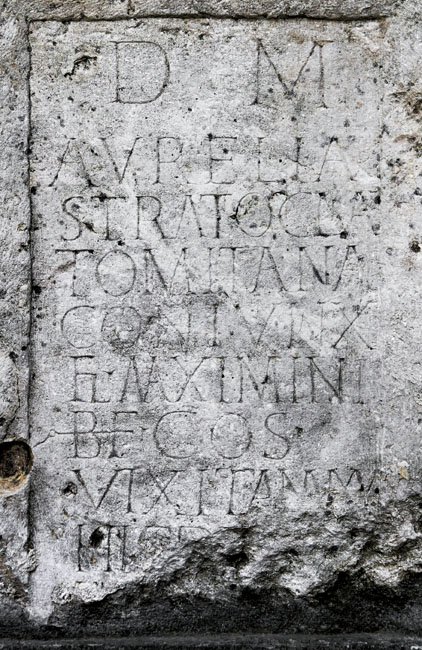 D M
AVRELIA
STRATOCLIA
TOMITANA
CONIVNX
FL MAXIMINI
BF COS
VIXIT ANN
HIC